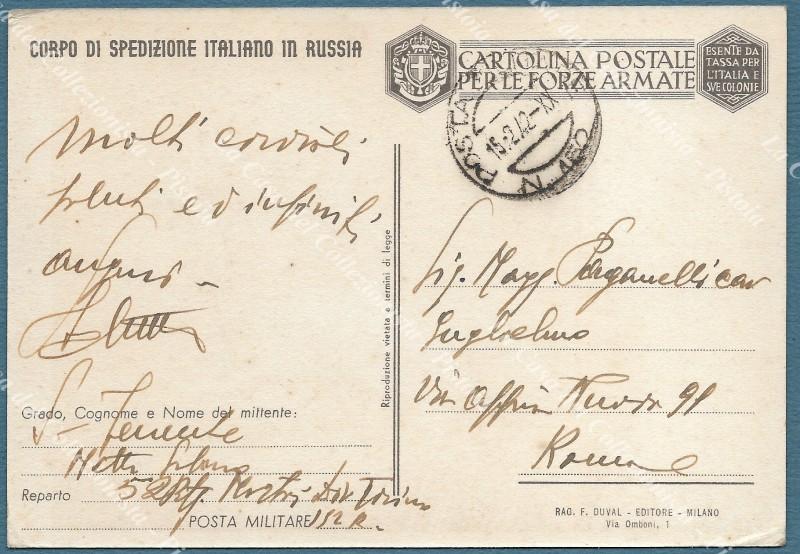 CORPO DI SPEDIZIONE ITALIANO IN RUSSIA
CARTOLINA POSTALE
PER LE FORZE ARMATE
ESENTE DA
TASSA PER
L'ITALIA E
SVE COLONIE
POSTA
15.2.42-XX
N. 152
Molti cordiali
saluti ed infiniti
auguri -
Grado, Cognome e Nome del mittente:
S. Tenente
Reparto 52 Rgt. Div Torino
POSTA MILITARE 152 R.
Riproduzione vietata a termini di legge
Sig. Magg. Paganelli cav
Guglielmo
Via Appia Nuova 91
Roma
RAG. F. DUVAL - EDITORE - MILANO
Via Omboni, 1